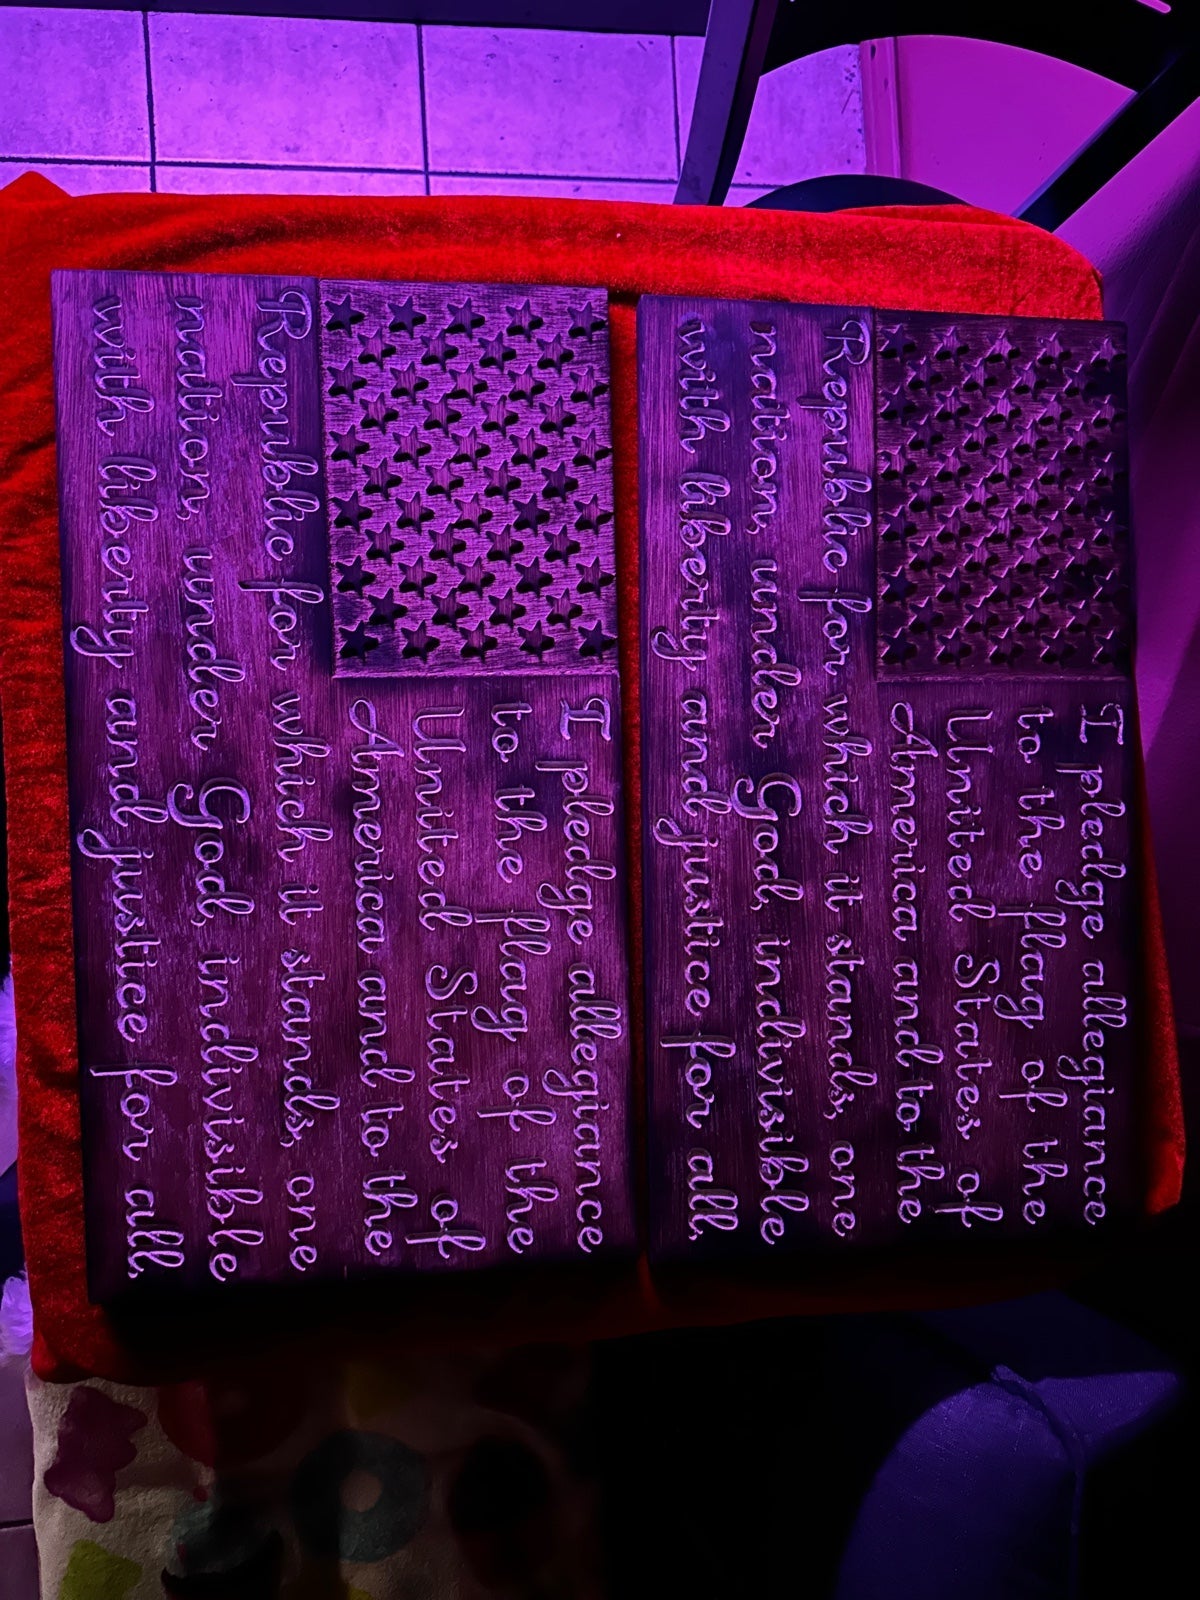 I pledge allegiance
to the flag of the
United States of
America and to the
Republic for which it stands, one
nation, under God, indivisible
with liberty and justice for all.
I pledge allegiance
to the flag of the
United States of
America and to the
Republic for which it stands, one
nation, under God, indivisible
with liberty and justice for all.